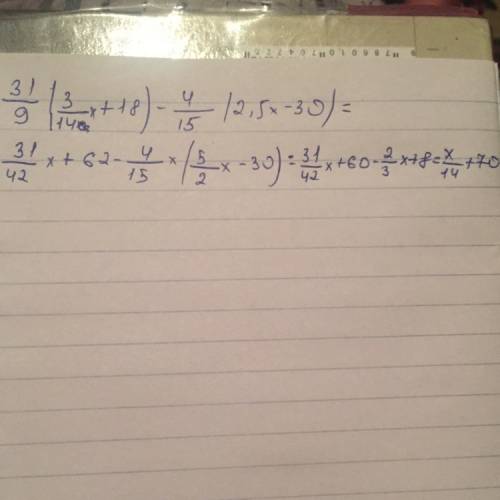 31/9 (3/14 x + 18) - 4/15 (2,5x - 30) =
31/42 x + 62 - 4/15 x (5/2 x - 30) = 31/42 x + 60 - 2/3 x + 8 = x/14 + 70